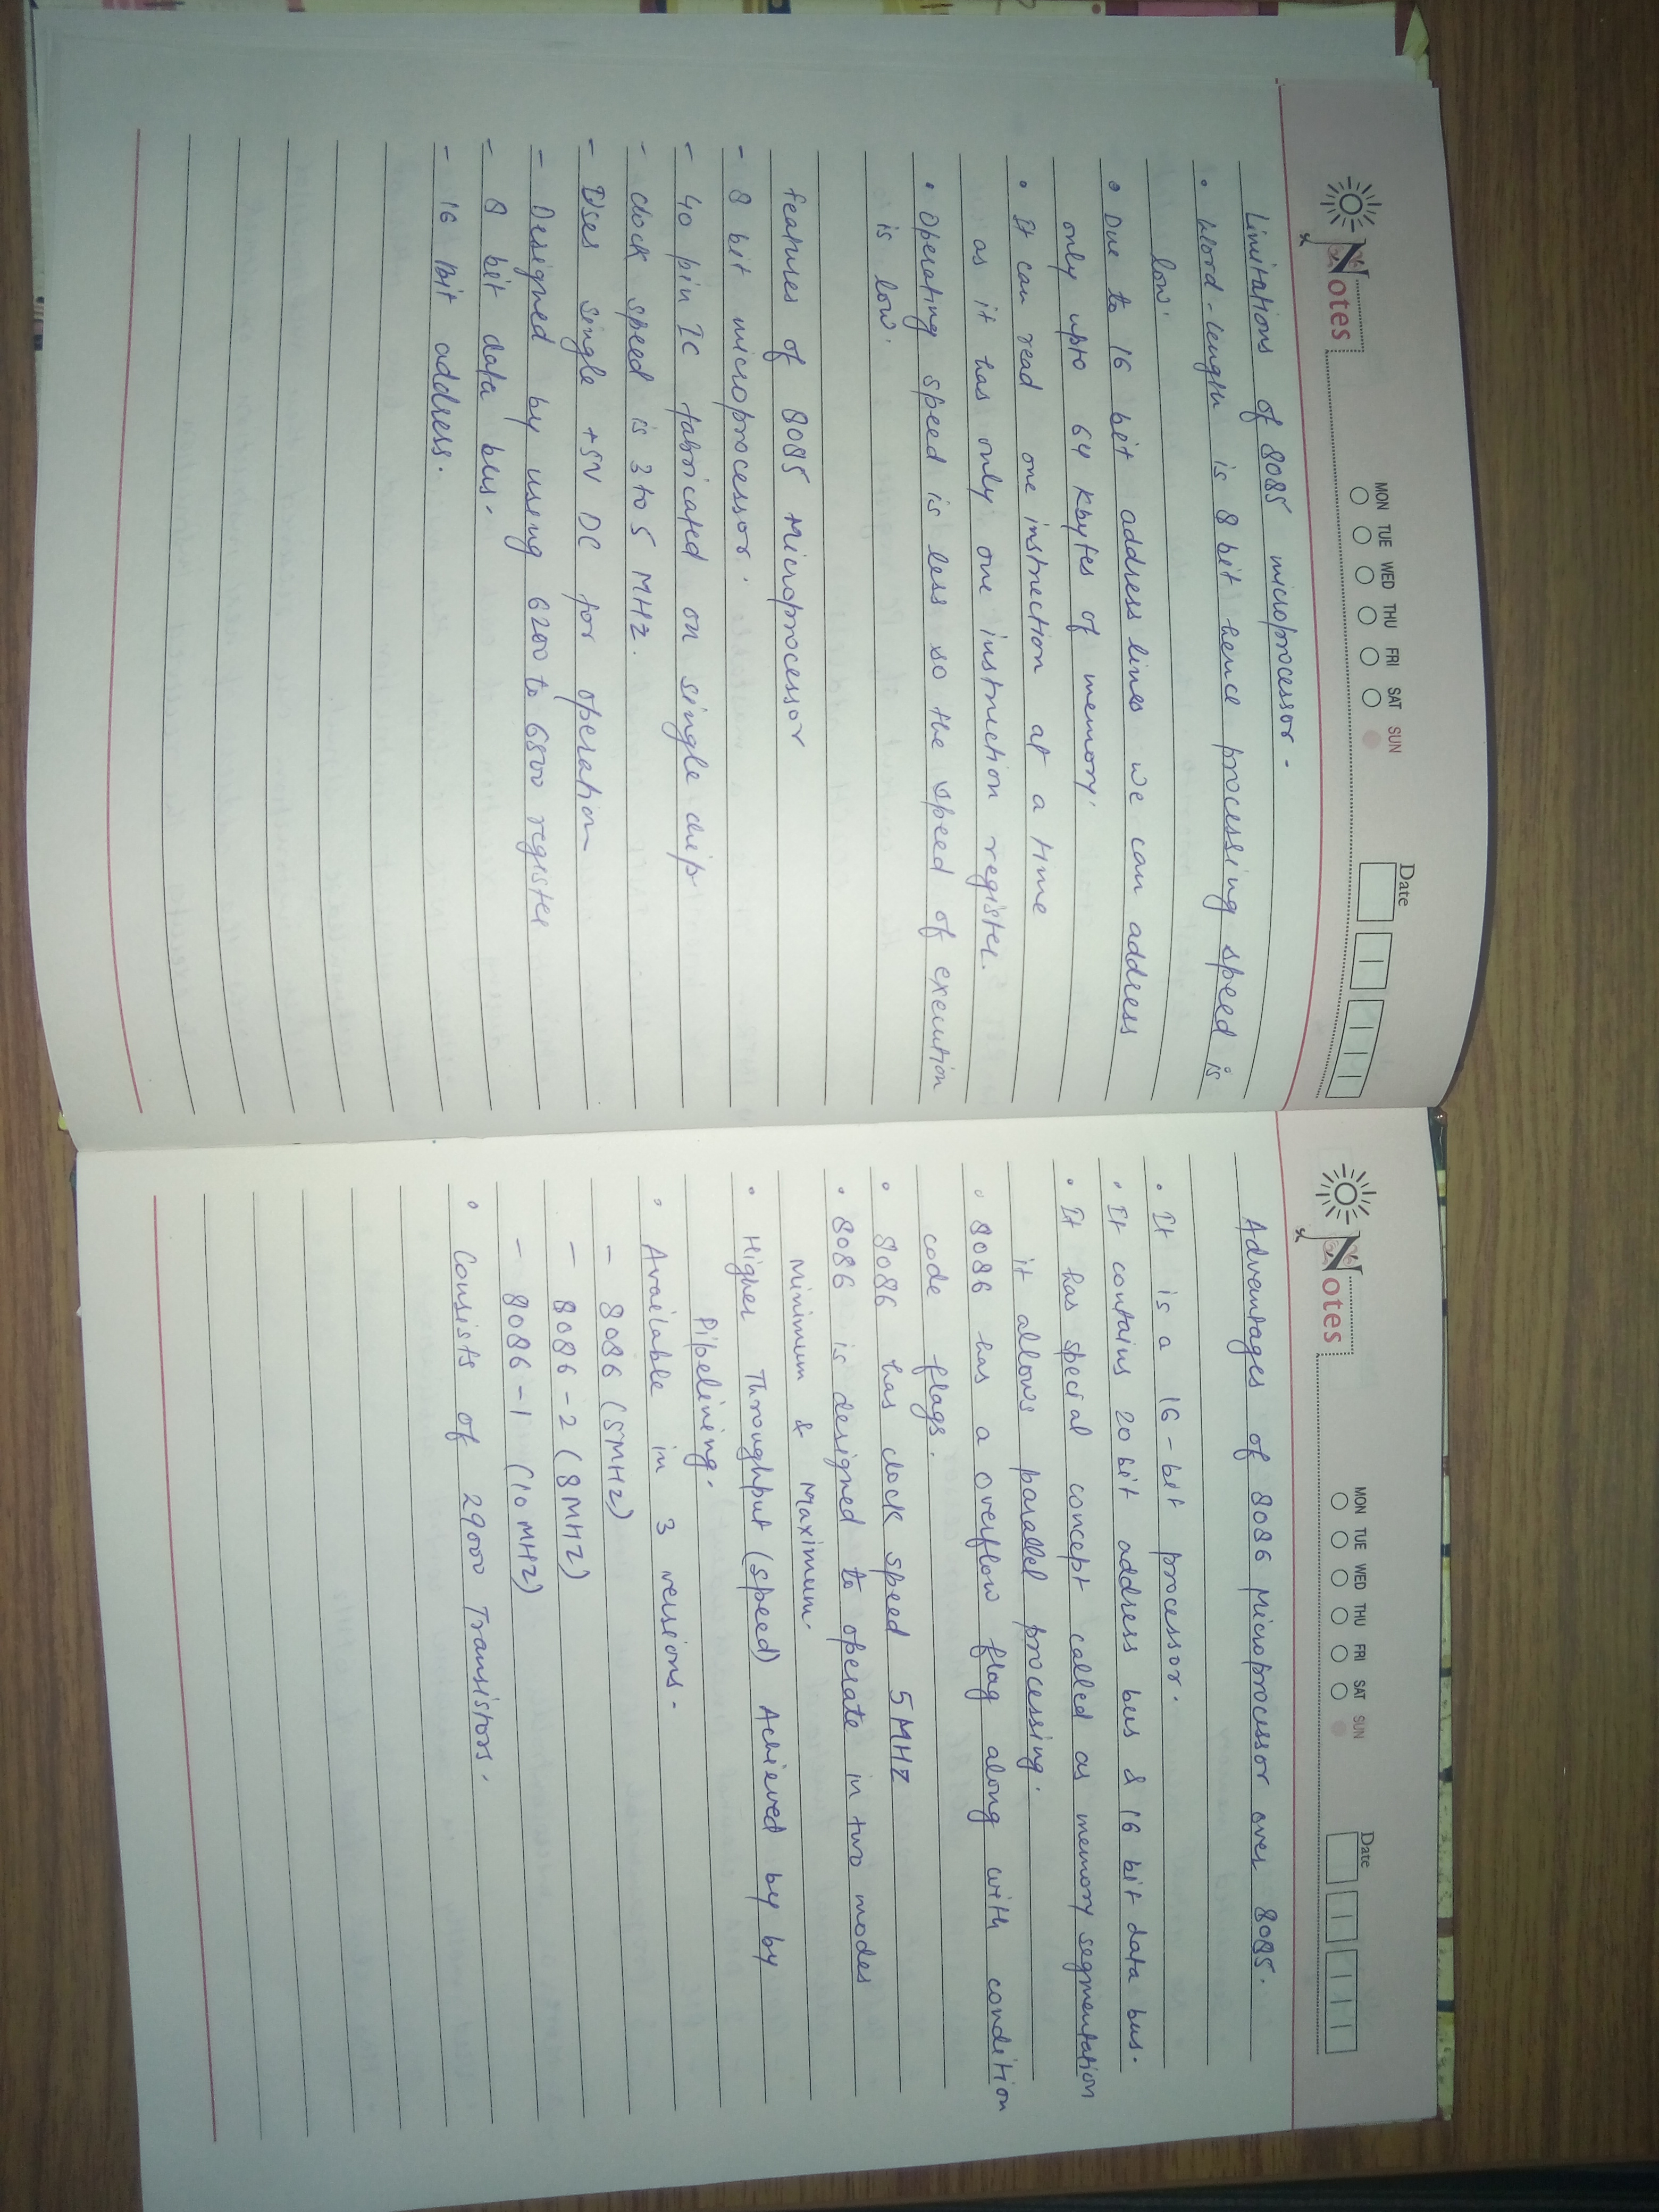 Notes
MON TUE WED THU FRI SAT SUN
Date
Limitations of 8085 microprocessor -
• Word-length is 8 bit hence processing speed is
low.
• Due to 16 bit address lines we can address
only upto 64 Kbytes of memory.
• It can read one instruction at a time
as it has only one instruction register.
• Operating speed is less so the speed of execution
is low.
features of 8085 Microprocessor
- 8 bit microprocessor.
- 40 pin IC fabricated on single chip
- clock speed is 3 to 5 MHz.
- Uses single +5V DC for operation
- Designed by using 6200 to 6500 register
- 8 bit data bus.
- 16 Bit address.
Notes
MON TUE WED THU FRI SAT SUN
Date
Advantages of 8086 Microprocessor over 8085.
• It is a 16-bit processor.
• It contains 20 bit address bus & 16 bit data bus.
• It has special concept called as memory segmentation
it allows parallel processing.
• 8086 has a overflow flag along with condition
code flags.
• 8086 has clock speed 5 MHZ
• 8086 is designed to operate in two modes
Minimum & Maximum.
• Higher Throughput (speed) Achieved by by
Pipelining.
• Available in 3 versions.
- 8086 (5MHz)
- 8086-2 (8MHZ)
- 8086-1 (10 MHZ)
• Consists of 29000 Transistors.